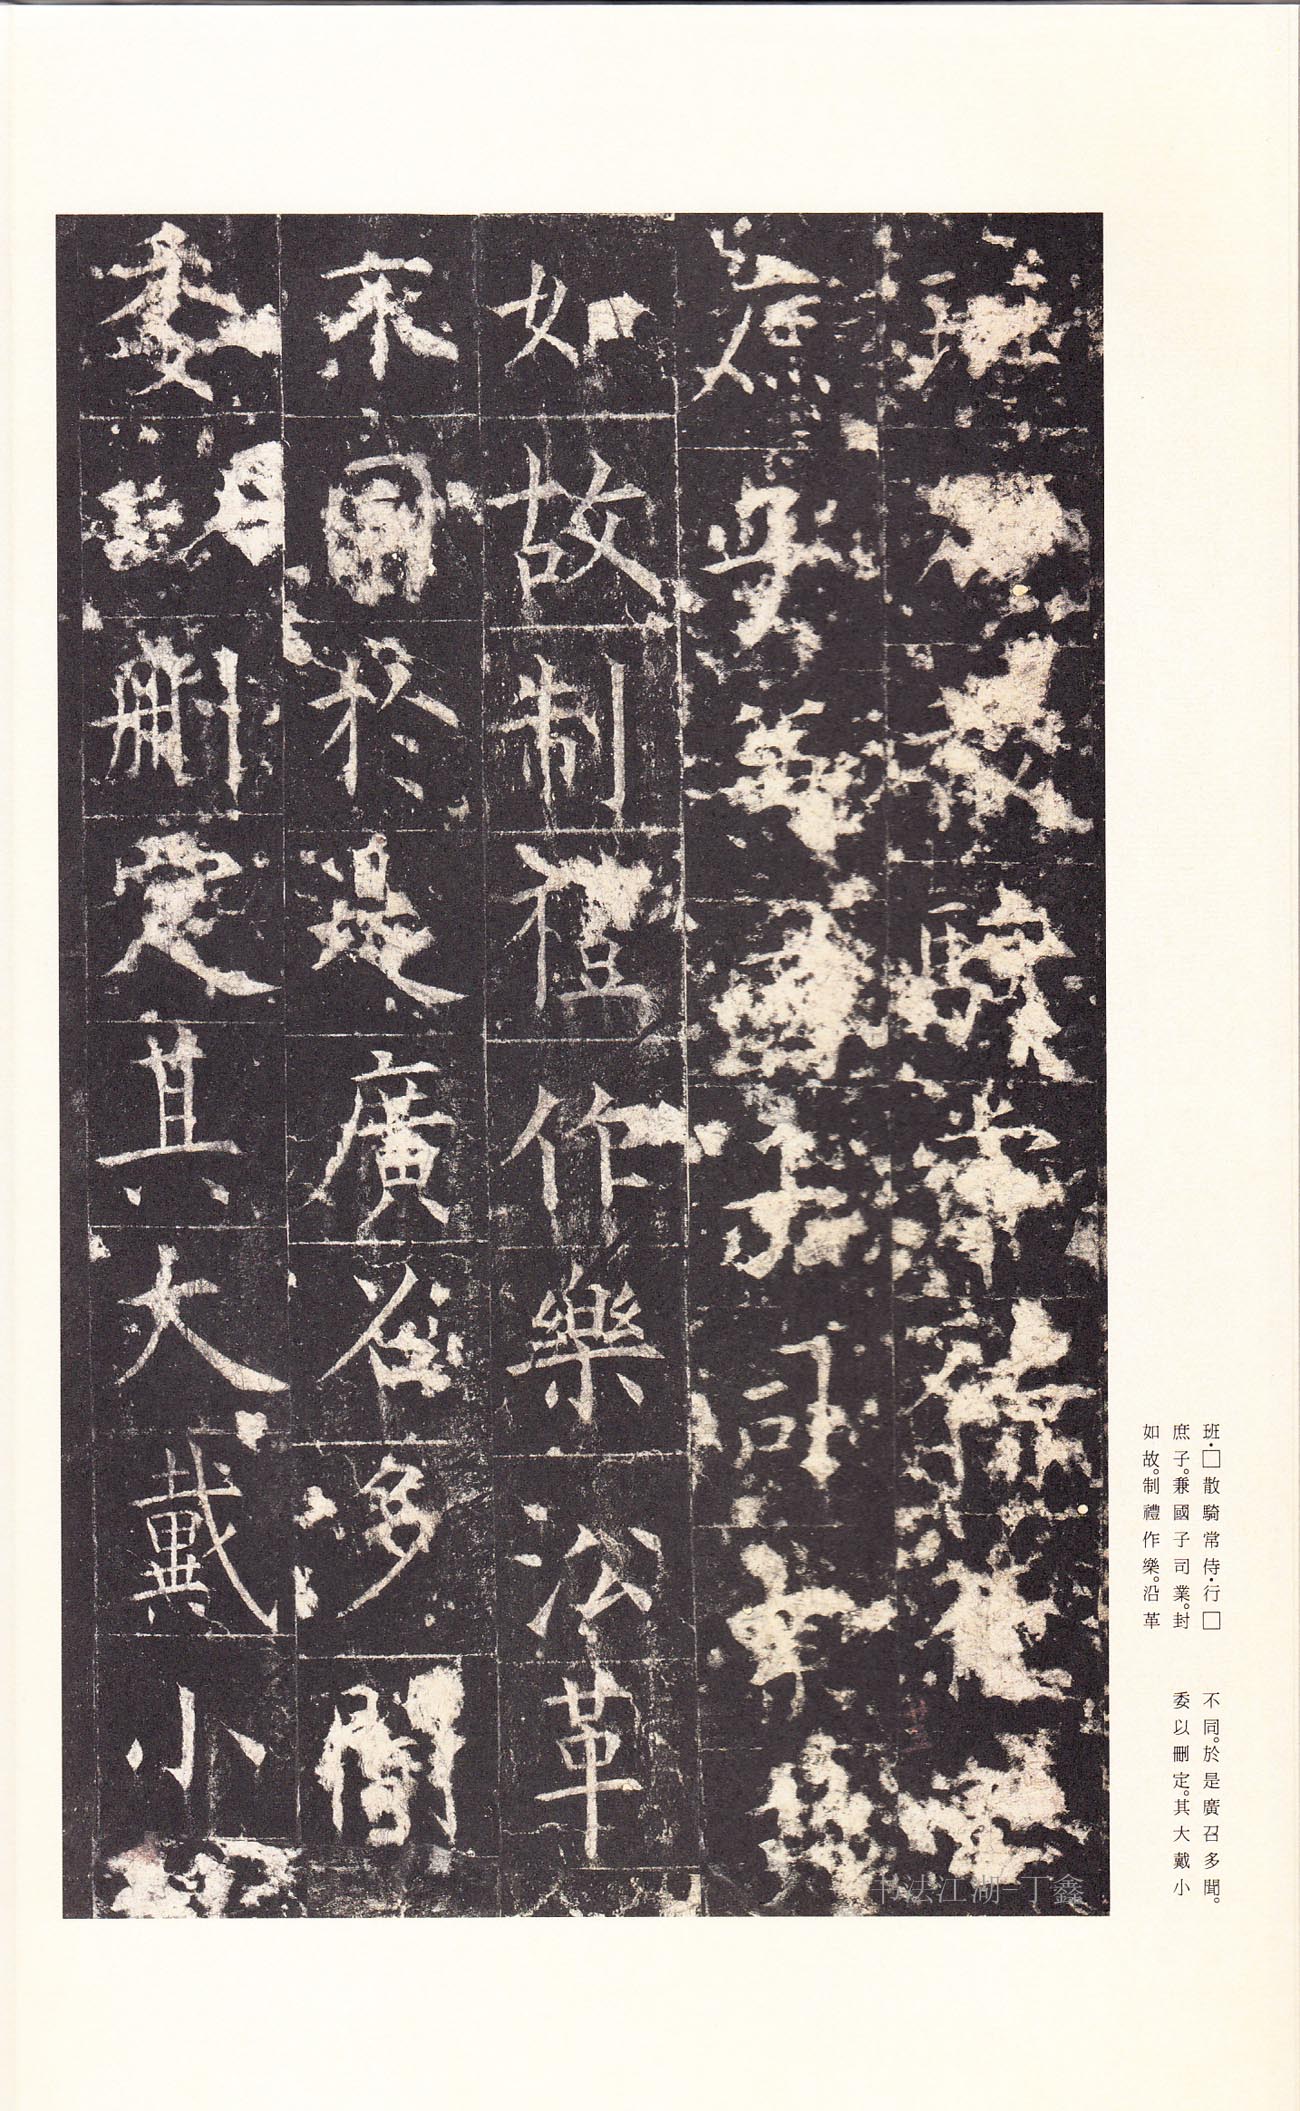 班□散騎常侍行□
庶子兼國子司業封
如故制禮作樂沿革
不同於是廣召多聞
委以刪定其大戴小
班·□散騎常侍·行□
庶子。兼國子司業。封
如故。制禮作樂。沿革
不同。於是廣召多聞。
委以刪定。其大戴小
书法江湖-丁鑫